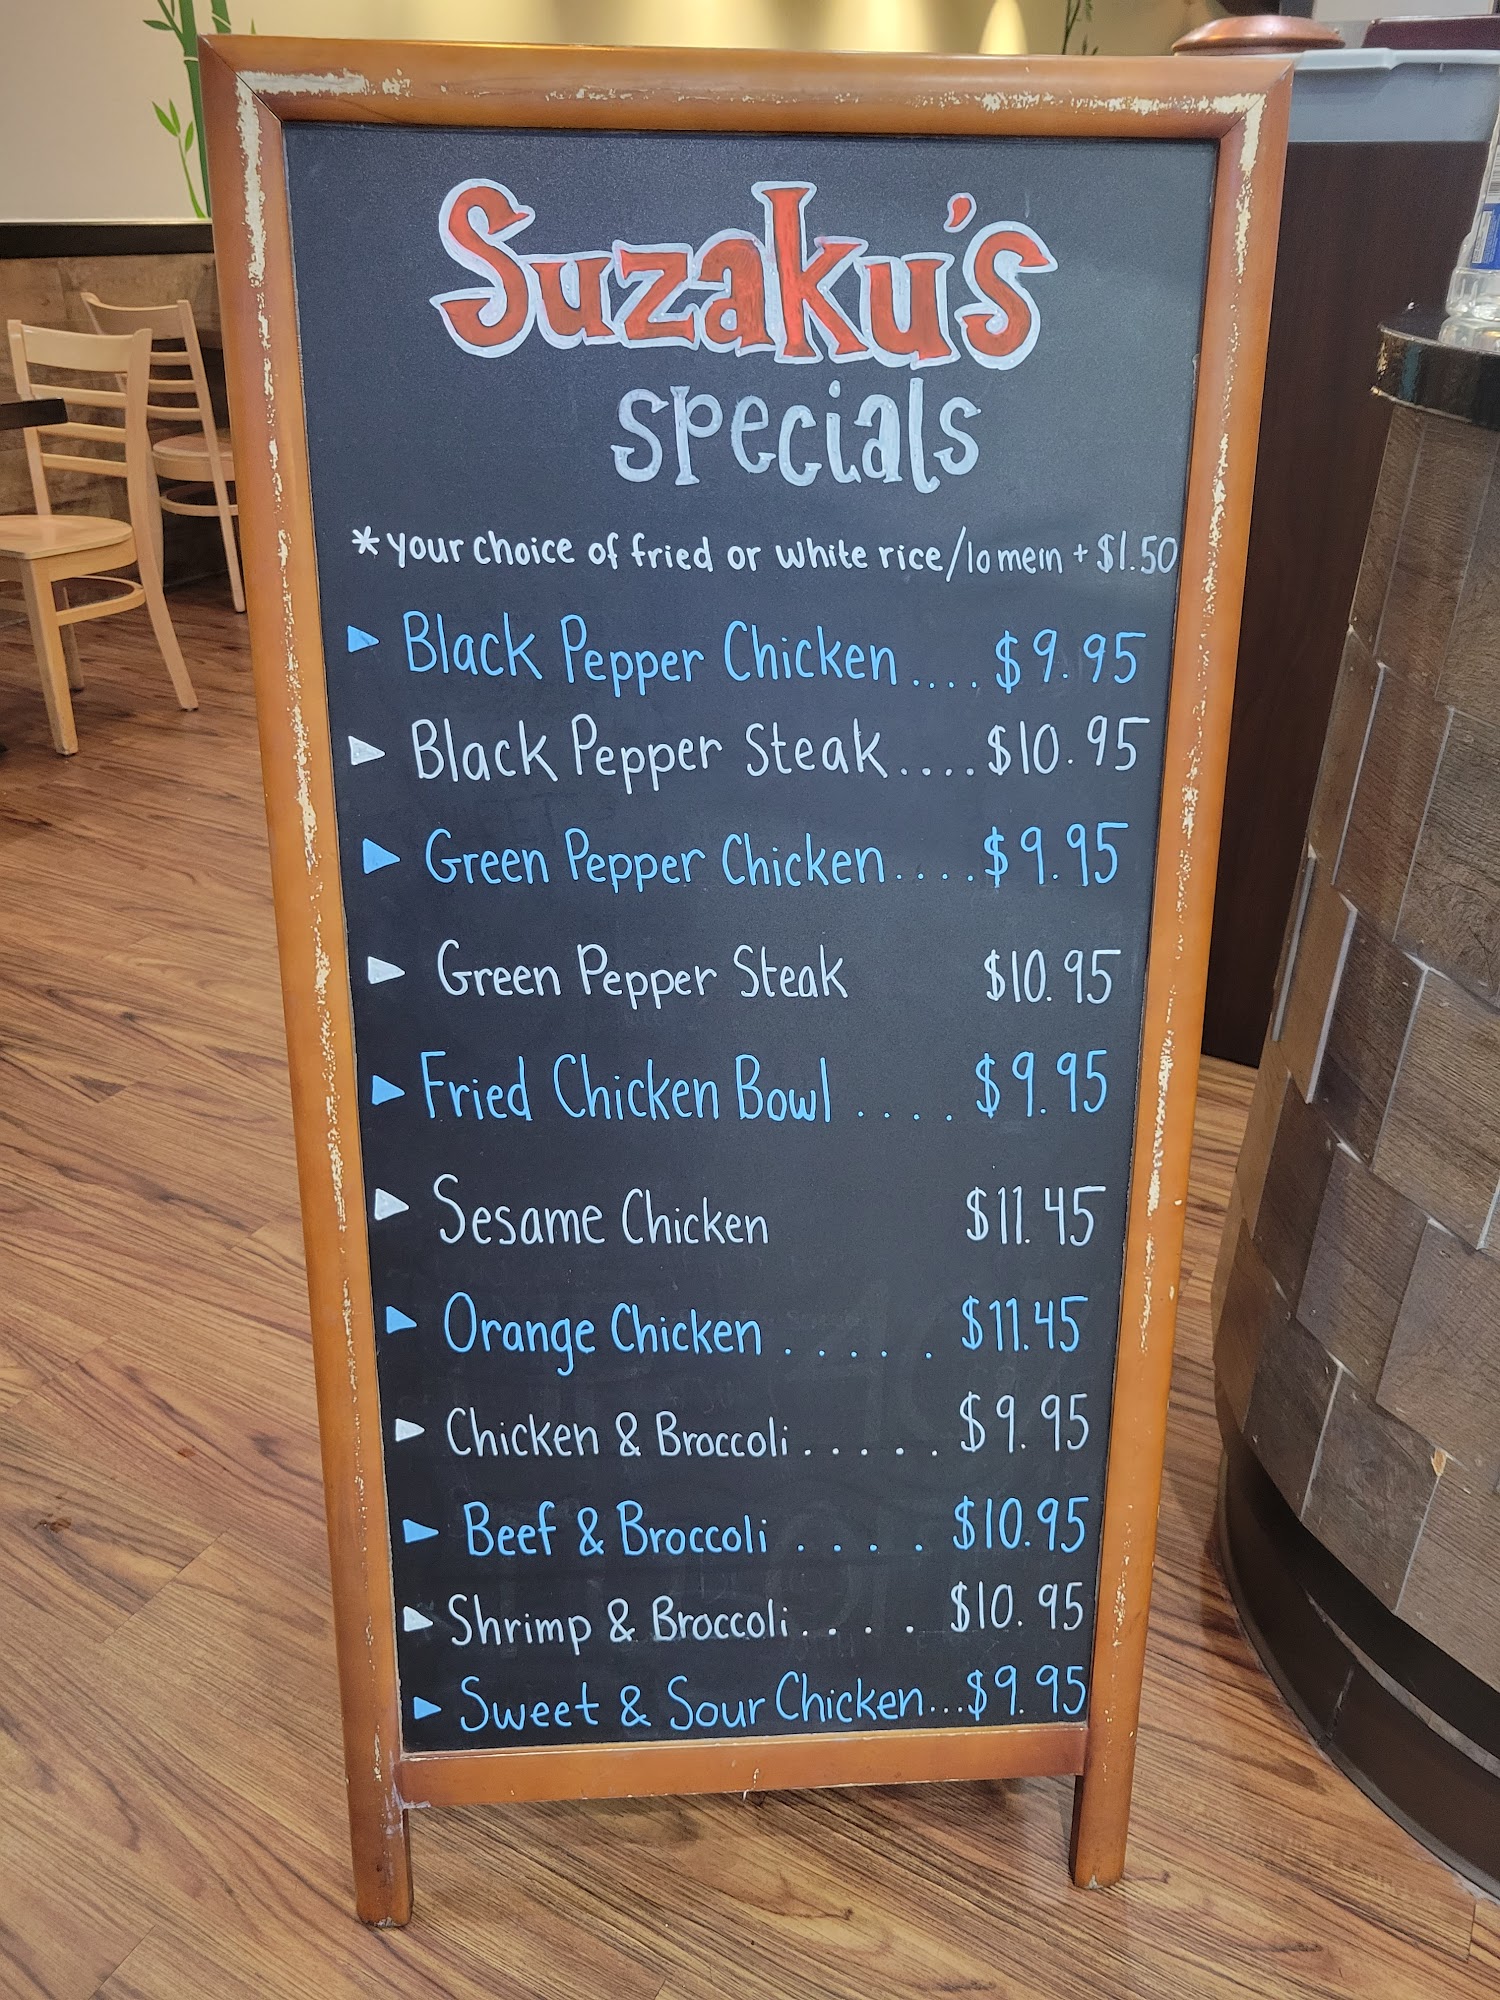 Suzaku's
specials
*your choice of fried or white rice/lo mein + $1.50
Black Pepper Chicken....$9.95
Black Pepper Steak....$10.95
Green Pepper Chicken....$9.95
Green Pepper Steak $10.95
Fried Chicken Bowl....$9.95
Sesame Chicken $11.45
Orange Chicken.....$11.45
Chicken & Broccoli.....$9.95
Beef & Broccoli....$10.95
Shrimp & Broccoli....$10.95
Sweet & Sour Chicken...$9.95